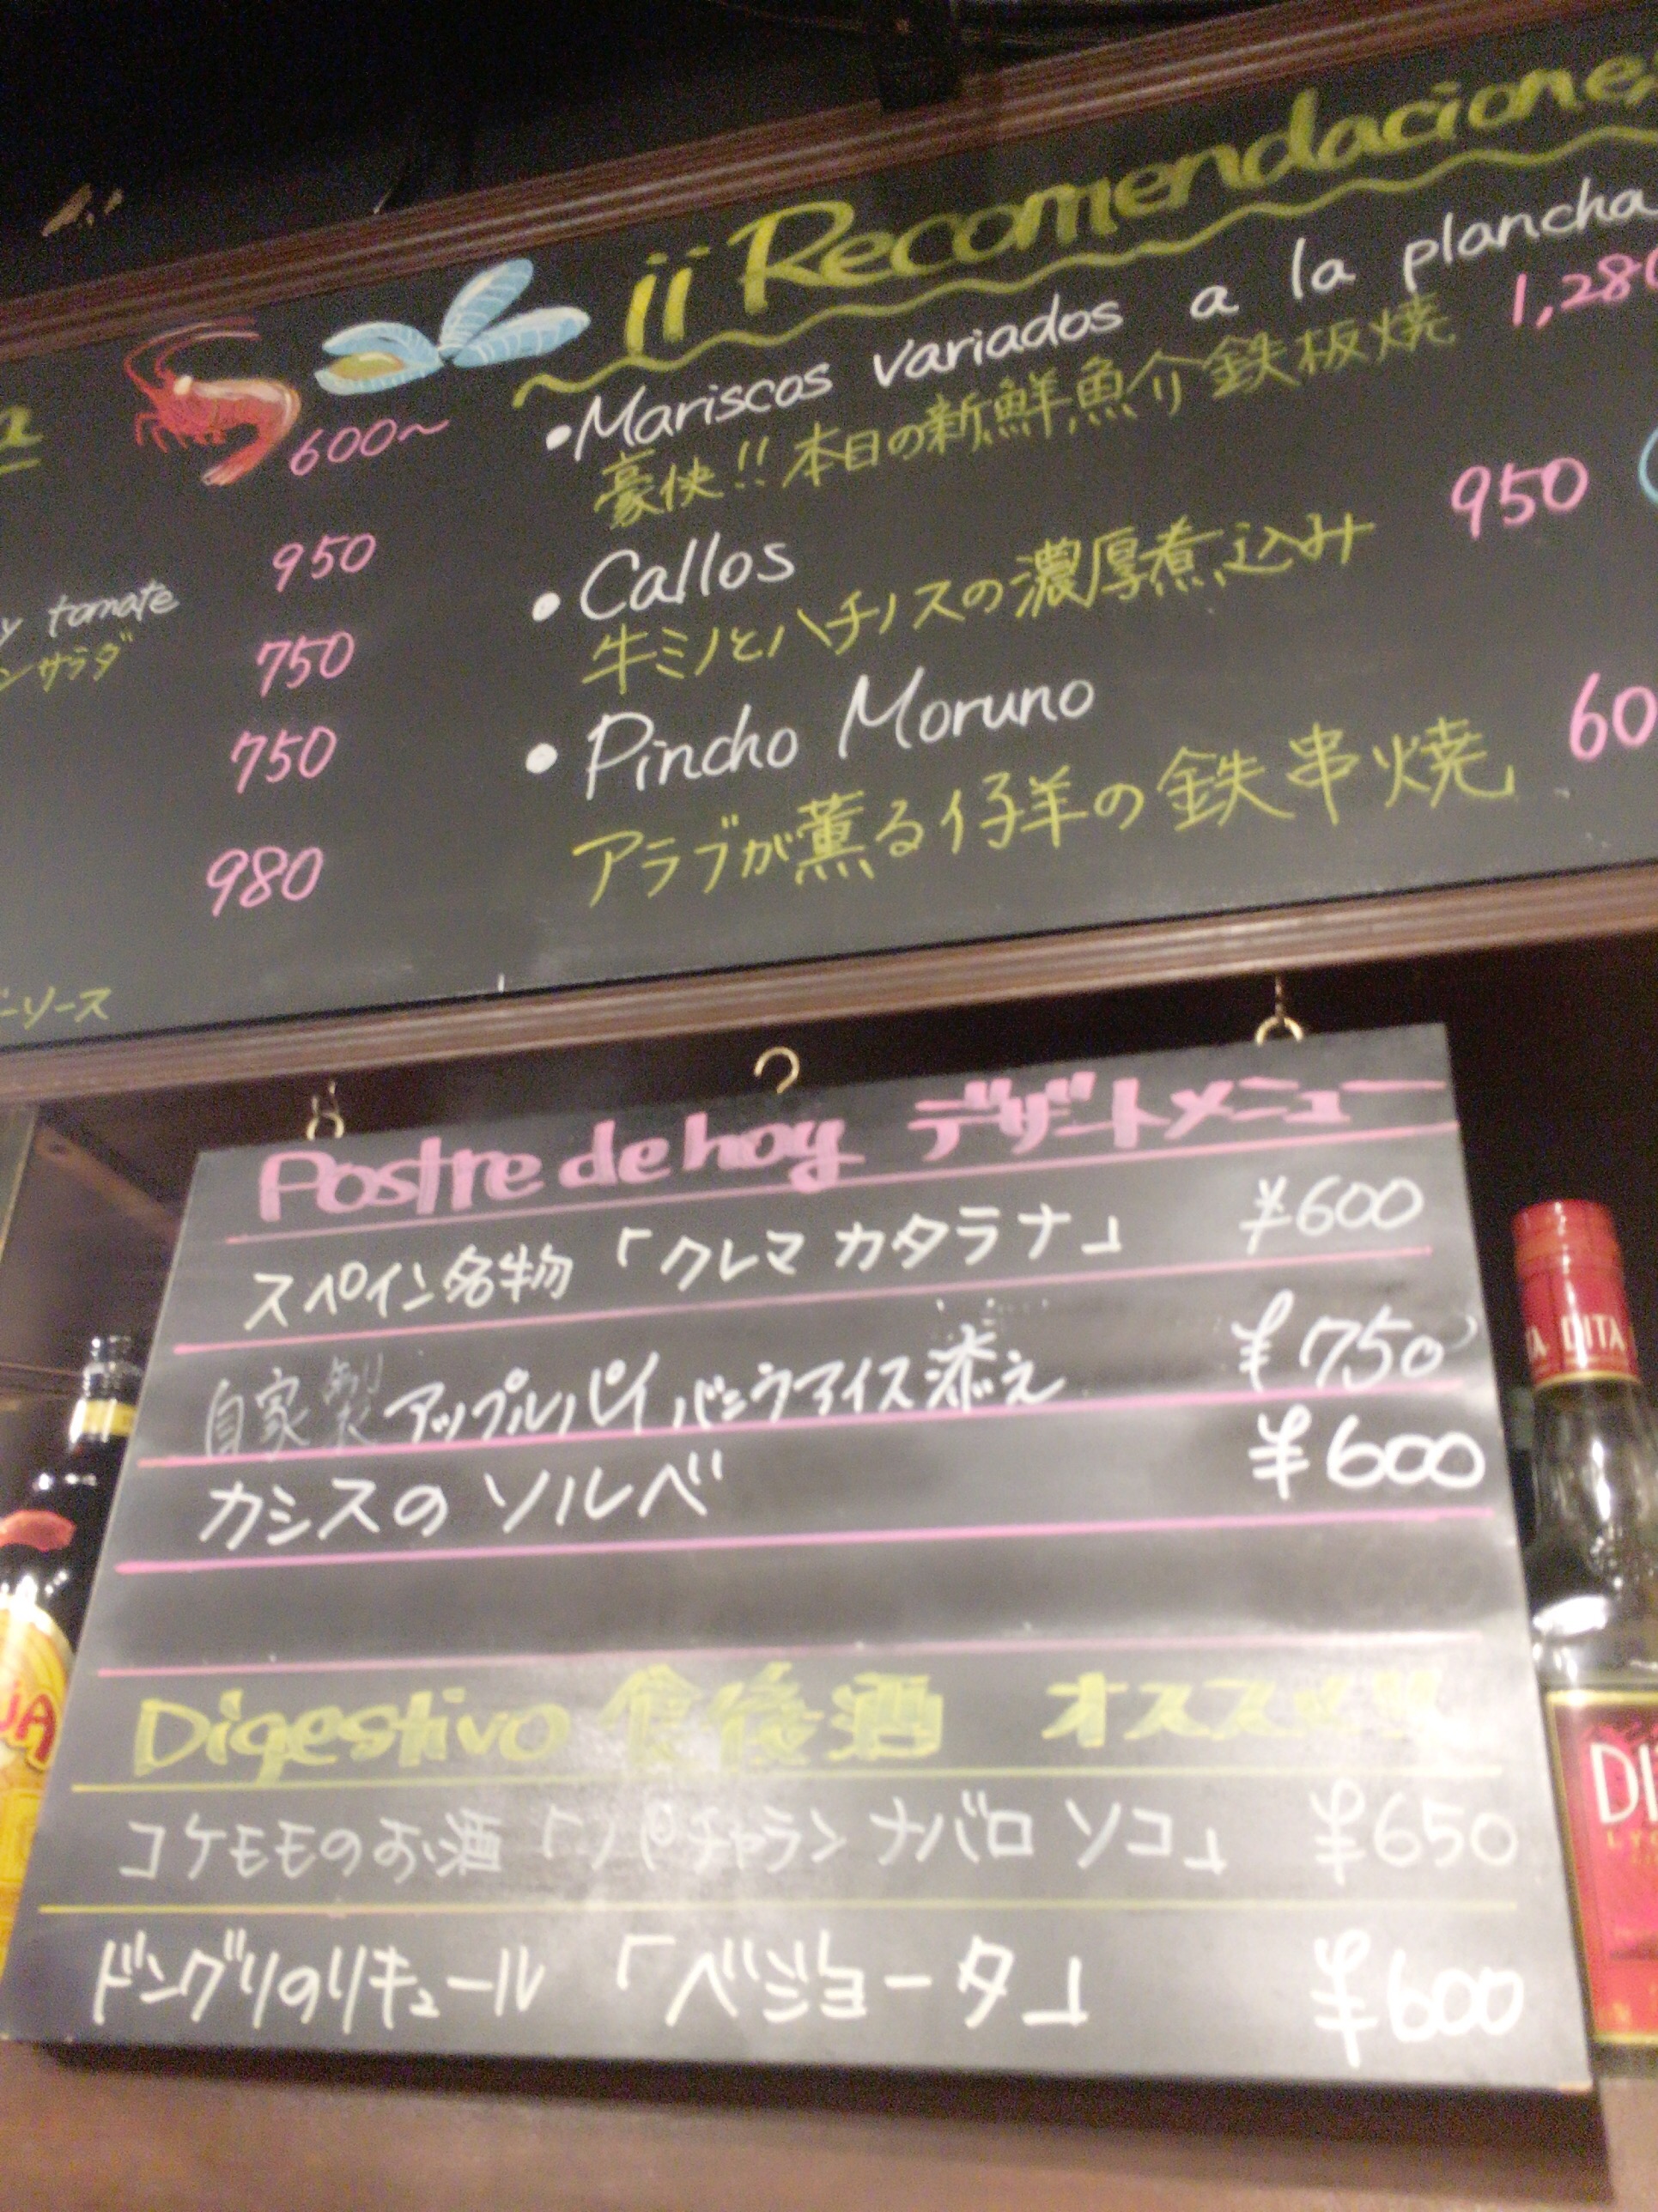 600～
950
y tomate
ンサラダ
750
750
980
ーソース
¡¡ Recomendaciones
• Mariscos variados a la plancha
豪快!! 本日の新鮮魚介鉄板焼 1,280
• Callos 950
牛ミノとハチノスの濃厚煮込み
• Pincho Moruno 60
アラブが薫る仔羊の鉄串焼
Postre de hoy デザートメニュー
スペイン名物「クレマ カタラナ」 ¥600
自家製アップルパイ バニラアイス添え ¥750
カシスの ソルベ ¥600
Digestivo 食後酒 オススメ!!
コケモモのお酒「パチャラン ナバロ ソコ」 ¥650
ドングリのリキュール 「ベジョータ」 ¥600
DITA